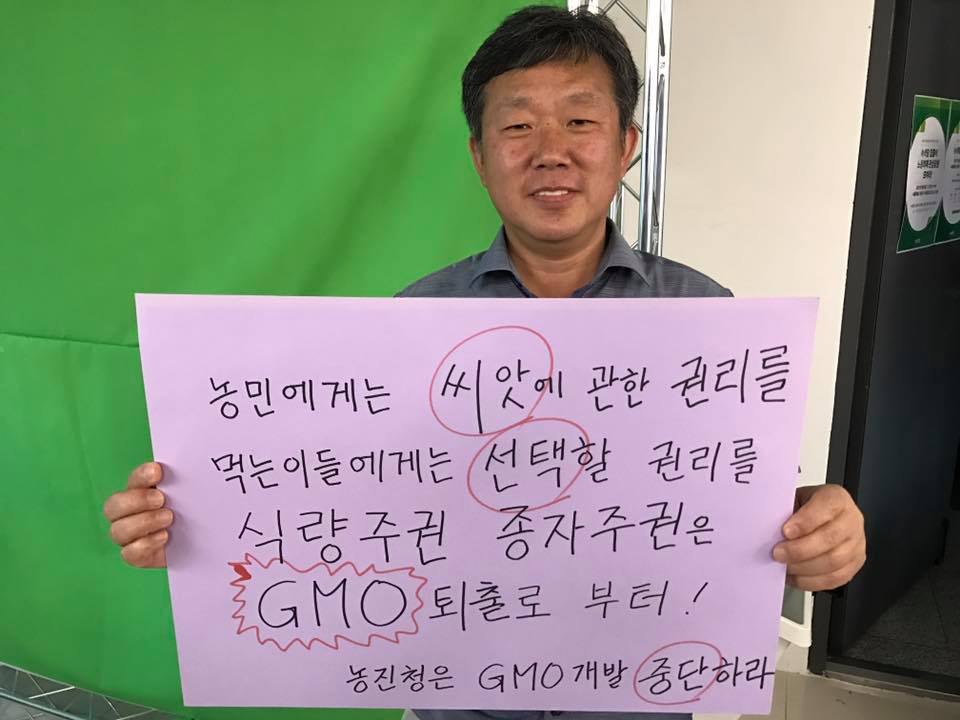 농민에게는 씨앗에 관한 권리를
먹는이들에게는 선택할 권리를
식량주권 종자주권은
GMO 퇴출로 부터!
농진청은 GMO개발 중단하라